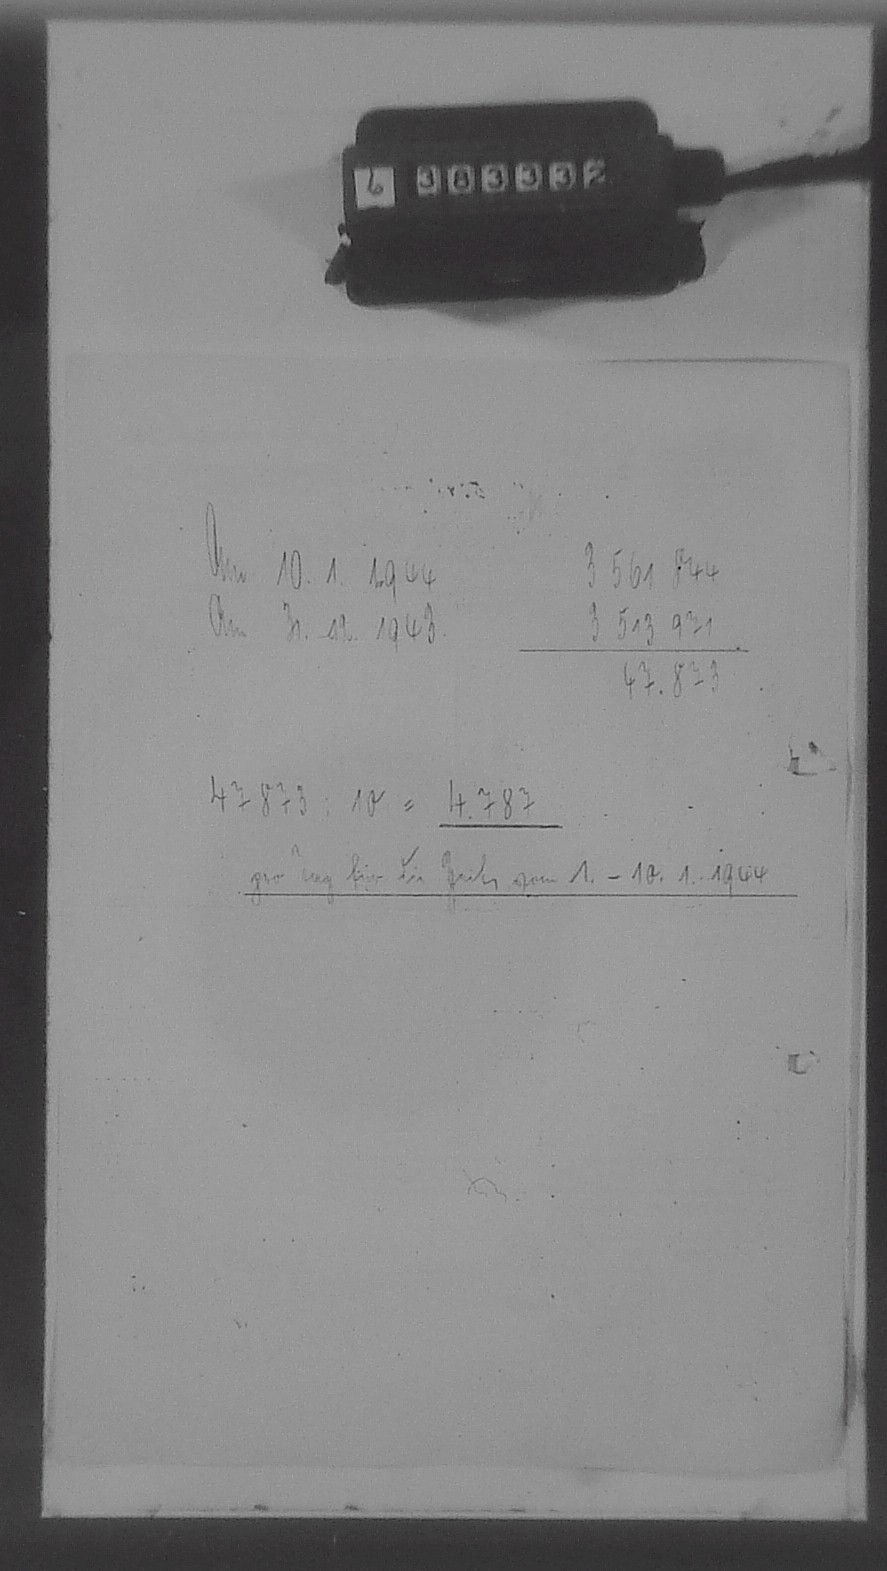 6 383332
Am 10. 1. 1944 3 561 844
Am 31. 12. 1943. 3 513 971
47.873
47 873 : 10 = 4.787
pro Tag für die Zeit vom 1. - 10. 1. 1944